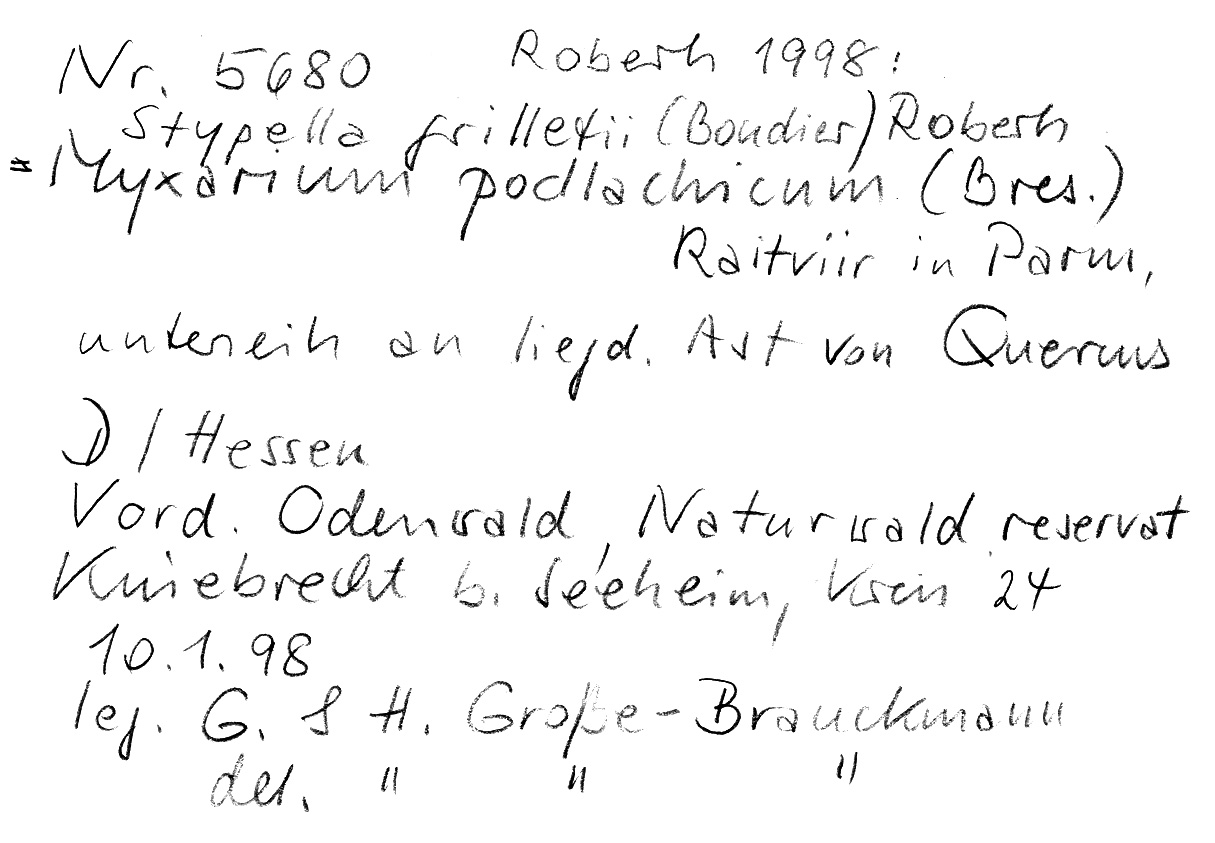 Nr. 5680 Roberts 1998:
Stypella grilletii (Boudier) Roberts
= Myxarium podlachicum (Bres.)
Raitviir in Parm,
unterseits an liegd. Ast von Quercus
D / Hessen
Vord. Odenwald, Naturwaldreservat
Kniebrecht b. Seeheim, Kreis 24
10.1.98
leg. G. & H. Große-Brauckmann
det. " " "